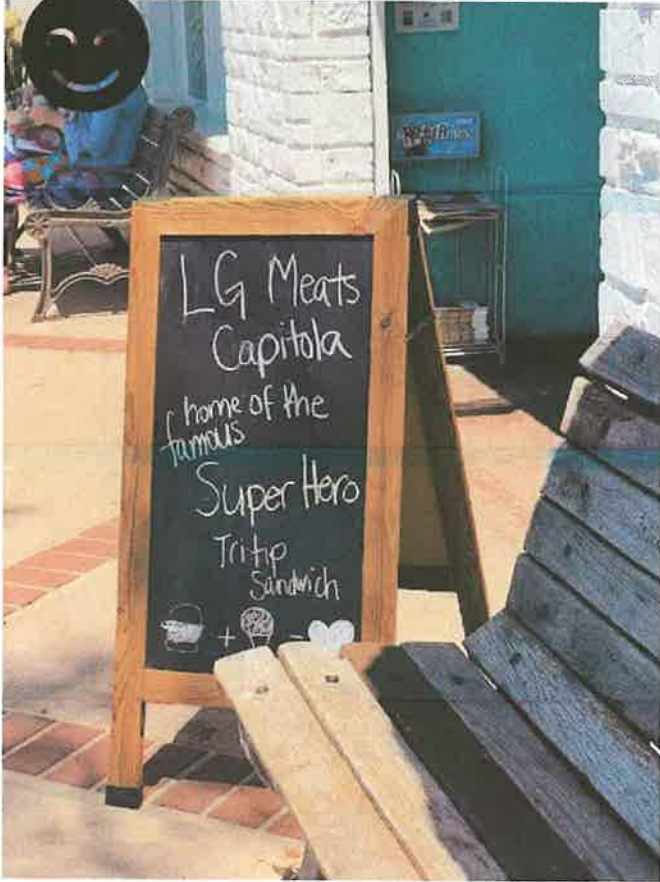 LG Meats
Capitola
home of the
famous
Super Hero
Tritip
Sandwich
+ =